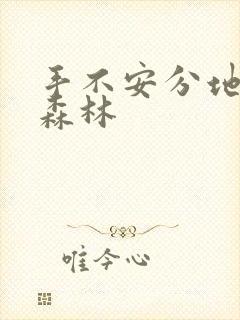 手不安分地
森林
唯今心